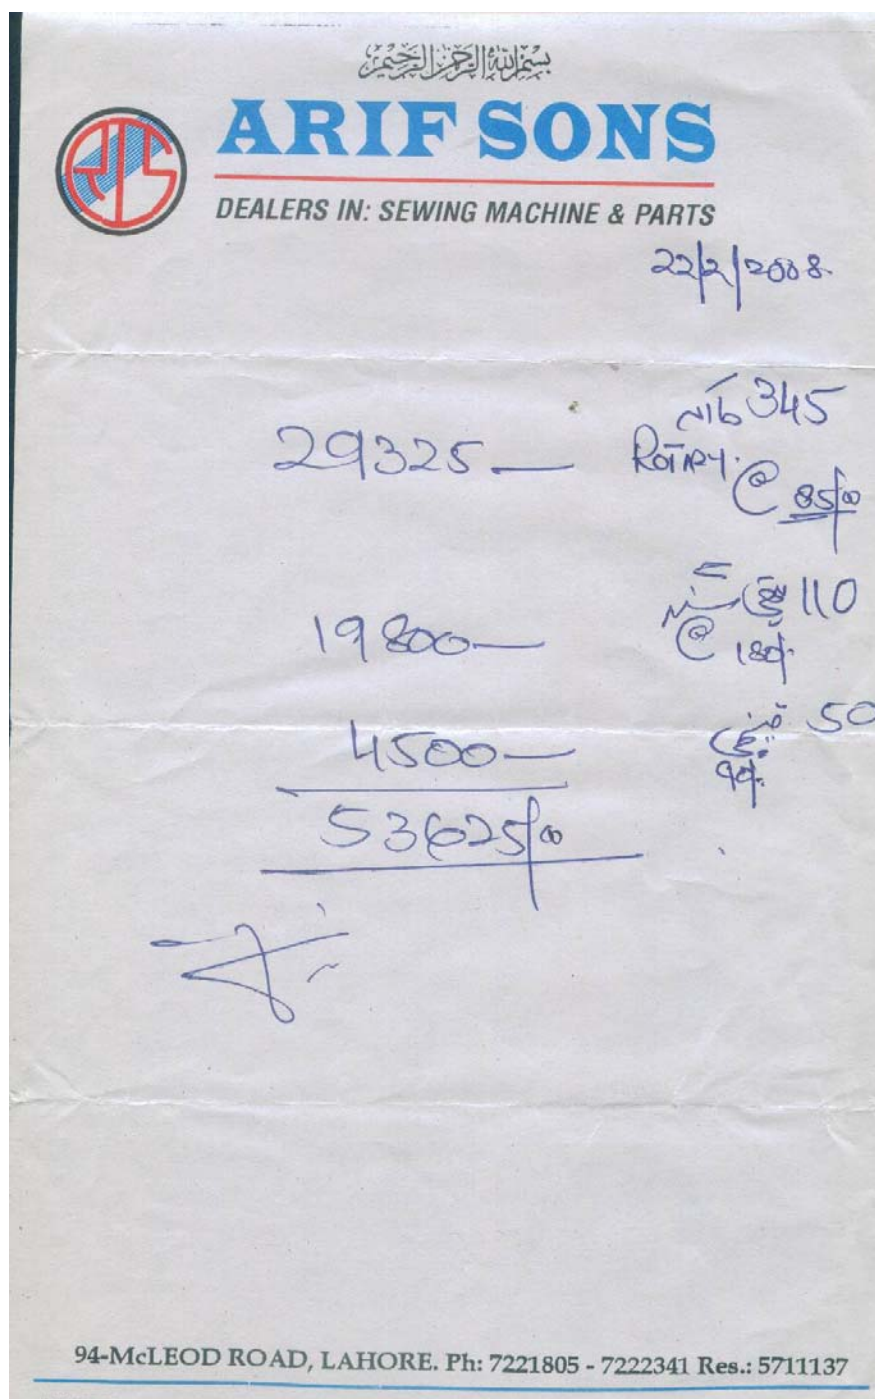 بسم الله الرحمن الرحيم
ARIF SONS
DEALERS IN: SEWING MACHINE & PARTS
22/2/2008
345
29325 —
ROTARY.
@ 85/00
110
19800 —
@ 180/-
50 قینچی
4500 —
90/-
53625/00
94-McLEOD ROAD, LAHORE. Ph: 7221805 - 7222341 Res.: 5711137